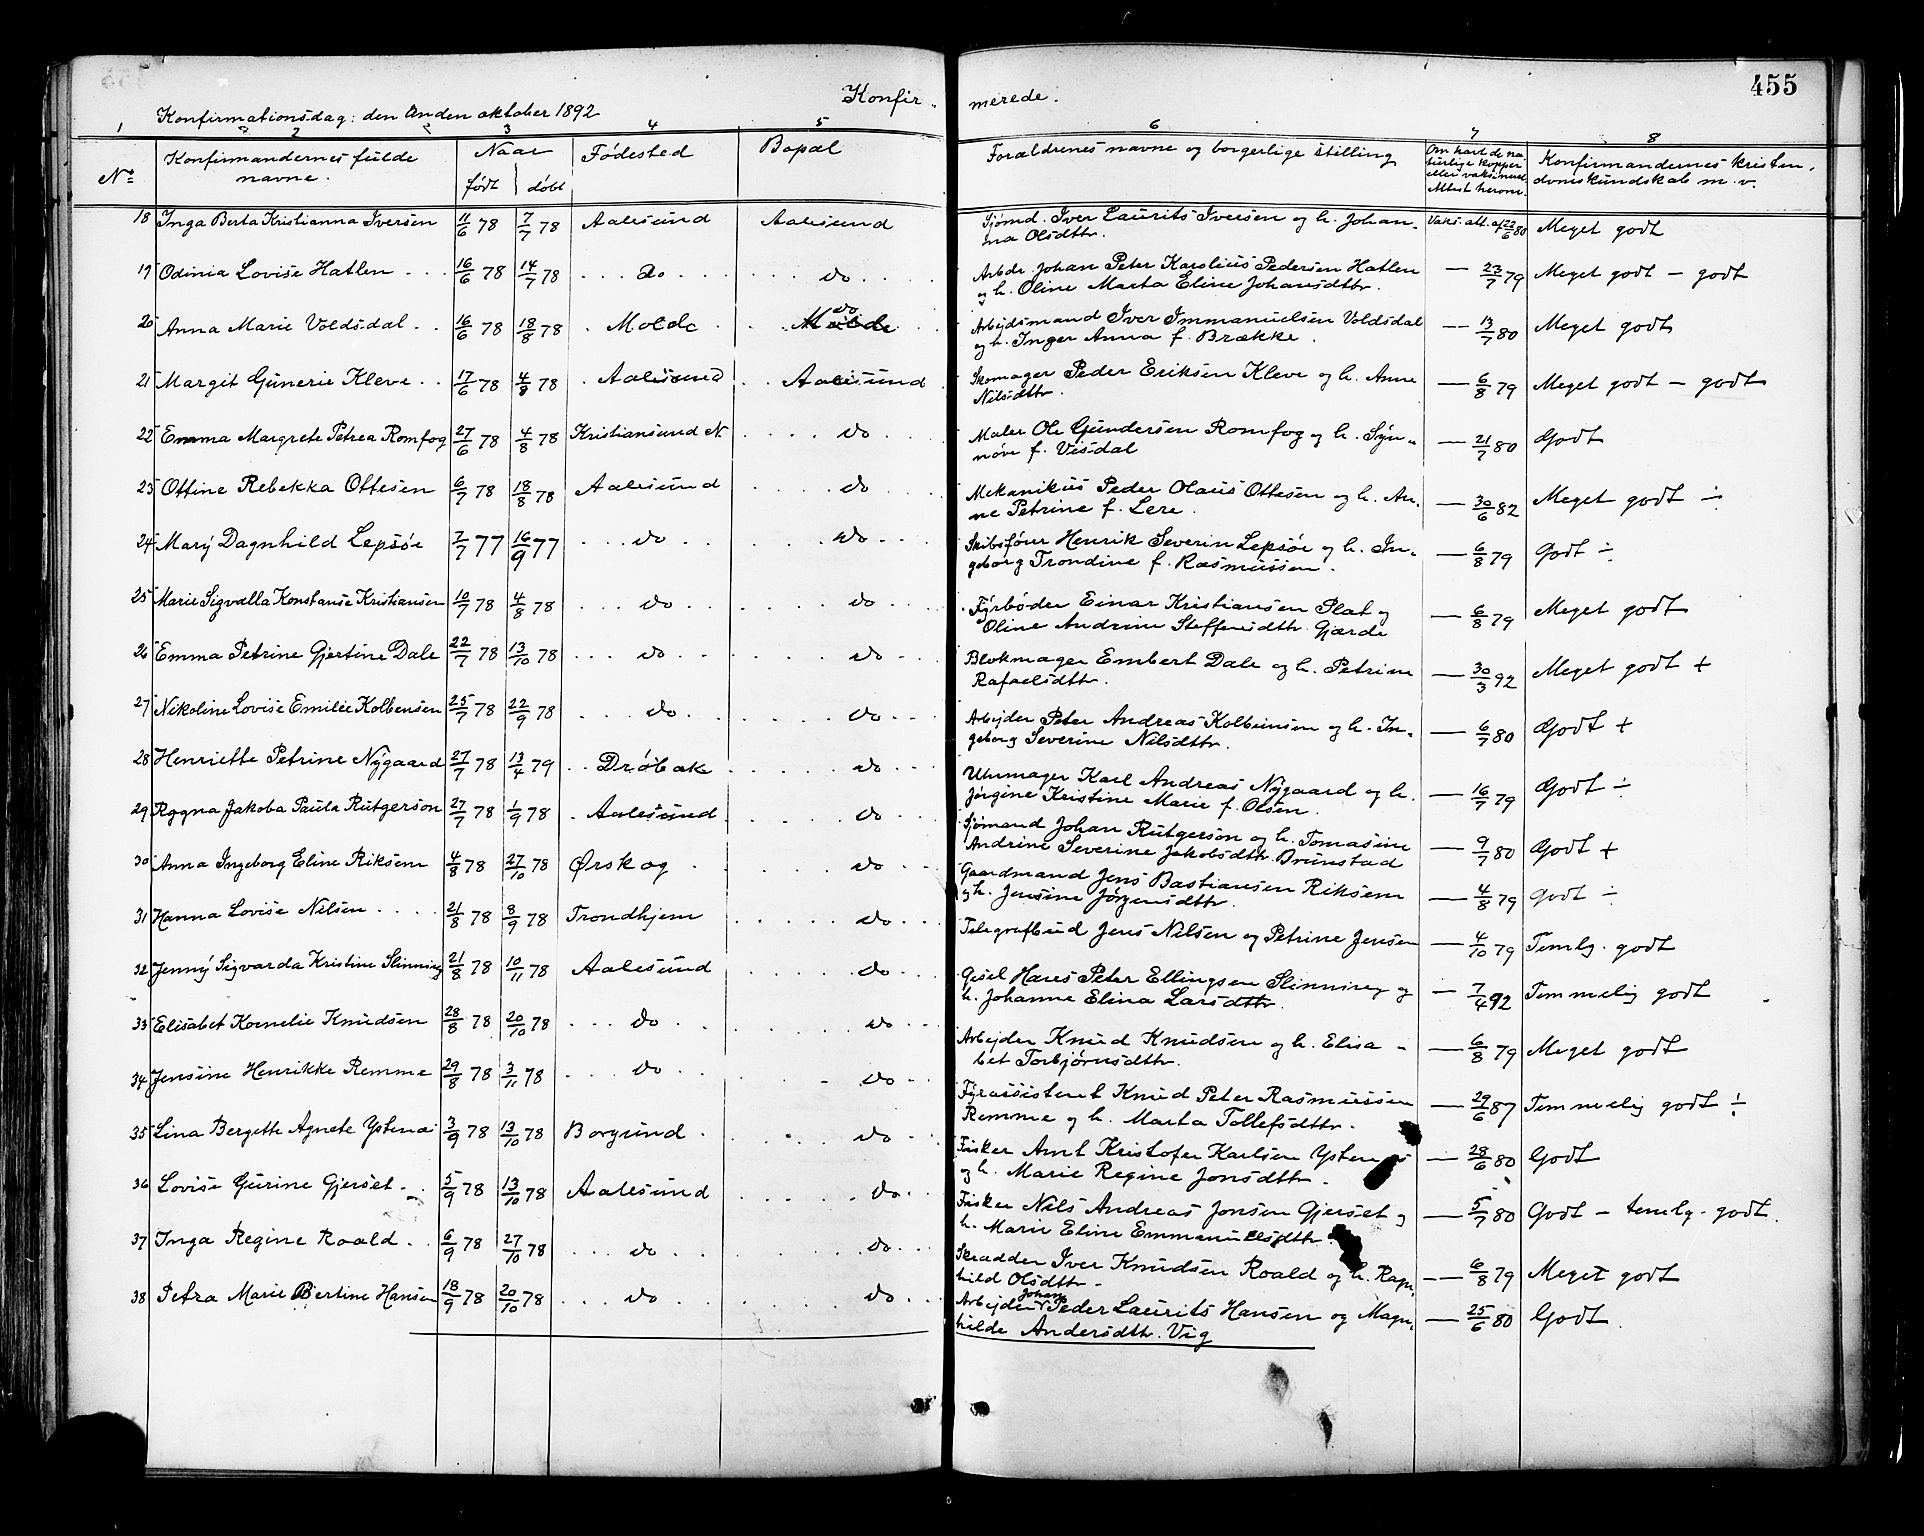 455
Konfir- merede.
Konfirmationsdag: den Anden oktober 1892
1 2 3 4 5 6 7 8
No Konfirmandernes fulde navne. Naar født døbt Fødested Bopæl Forældrenes navne og borgerlige stilling Om havt de naturlige kopper eller vaksineret Attest herom. Konfirmandernes kristendomskundskab m.v.
18 Inga Berta Kristianna Iversen 11/6 78 7/7 78 Aalesund Aalesund Sjømd. Iver Laurits Iversen og h. Johan-
na Olsdttr. Vaks. att. af 22/6 80 Meget godt
19 Odinia Lovise Hatlen 16/6 78 14/7 78 do do Arbdr. Johan Peter Karolius Pedersen Hatlen
og h. Oline Marta Eline Johansdttr. — 23/7 79 Meget godt - godt
20 Anna Marie Voldsdal 16/6 78 18/8 78 Molde do Molde Arbejdsmand Iver Immanuelsen Voldsdal
og h. Inger Anna f. Brække. — 13/7 80 Meget godt
21 Margit Gunerie Kleve 17/6 78 4/8 78 Aalesund Aalesund Skomager Peder Eriksen Kleve og h. Anne
Nilsdttr. — 6/8 79 Meget godt - godt
22 Emma Margrete Petrea Romfog 27/6 78 4/8 78 Kristiansund N. do Maler Ole Gundersen Romfog og h. Syn-
nøve f. Visdal — 21/7 80 Godt
23 Ottine Rebekka Ottesen 6/7 78 18/8 78 Aalesund do Mekanikus Peder Olaus Ottesen og h. An-
ne Petrine f. Lere. — 30/6 82 Meget godt ÷
24 Mary Dagnhild Lepsøe 7/7 77 16/9 77 do do Skibsfører Henrik Severin Lepsøe og h. In-
geborg Trondine f. Rasmussen. — 6/8 79 Godt ÷
25 Marie Sigvalla Konstanse Kristiansen 10/7 78 4/8 78 do do Fyrbøder Einar Kristiansen Plat og
Oline Andrine Steffensdttr. Gjærde — 6/8 79 Meget godt
26 Emma Petrine Gjertine Dale 22/7 78 13/10 78 do do Blokmager Embert Dale og h. Petrine
Rafaelsdttr. — 30/3 92 Meget godt +
27 Nikoline Lovise Emilie Kolbensen 25/7 78 22/9 78 do do Arbejder Peter Andreas Kolbeinsen og h. In-
geborg Severine Nilsdttr. — 6/7 80 Godt +
28 Henriette Petrine Nygaard 27/7 78 13/4 79 Drøbak do Uhrmager Karl Andreas Nygaard og h.
Jørgine Kristine Marie f. Olsen. — 16/7 79 Godt ÷
29 Ragna Jakoba Paula Rutgerson 27/7 78 1/9 78 Aalesund do Sjømand Johan Rutgerson og h. Tomasine
Andrine Severine Jakobsdttr. Brunstad — 9/7 80 Godt +
30 Anna Ingeborg Eline Riksem 4/8 78 27/10 78 Ørskog do Gaardmand Jens Bastiansen Riksem
og h. Jensine Jørgensdttr. — 4/8 79 Godt ÷
31 Hanna Lovise Nilsen 21/8 78 8/9 78 Trondhjem do Telegrafbud Jens Nilsen og Petrine Jensen — 4/10 79 Temlg. godt
32 Jenny Sigvarda Kristine Slinning 21/8 78 10/11 78 Aalesund do Gesel Hans Peter Ellingsen Slinning og
h. Johanne Elina Larsdttr. — 7/4 92 Temmelig godt
33 Elisabet Kornelie Knudsen 28/8 78 20/10 78 do do Arbejder Knud Knudsen og h. Elisa-
bet Torbjørnsdttr. — 6/8 79 Meget godt
34 Jensine Henrikke Remme 29/8 78 3/11 78 do do Fyrassistent Knud Peter Rasmussen
Remme og h. Marta Tollefsdttr. — 29/6 87 Temmelig godt ÷
35 Lina Bergitte Agnete Ystenæs 3/9 78 13/10 78 Borgund do Fisker Arnt Kristofer Karlsen Ystenæs
og h. Marie Regine Jonsdttr. — 28/6 80 Godt
36 Lovise Gurine Gjerset 5/9 78 13/10 78 Aalesund do Fisker Nils Andreas Jonsen Gjerset og
h. Marie Eline Emmanuelsdttr. — 5/7 80 Godt - temlg. godt.
37 Inga Regine Roald 6/9 78 27/10 78 do do Skrædder Iver Knudsen Roald og h. Ragn-
hild Olsdttr. — 6/8 79 Meget godt
38 Petra Marie Bertine Hansen 18/9 78 20/10 78 do do Arbejder Johan Peder Laurits Hansen og Magn-
hilde Andersdttr. Vig — 25/6 80 Godt